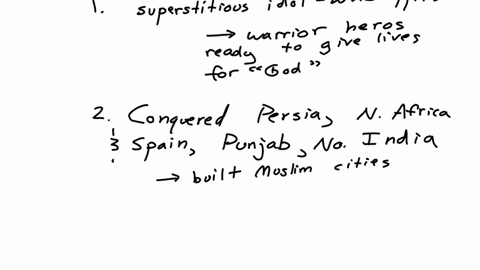 1. superstitious idol
→ warrior heros
ready to give lives
for "God"
2. Conquered Persia, N. Africa
& Spain, Punjab, No. India
→ built Muslim cities